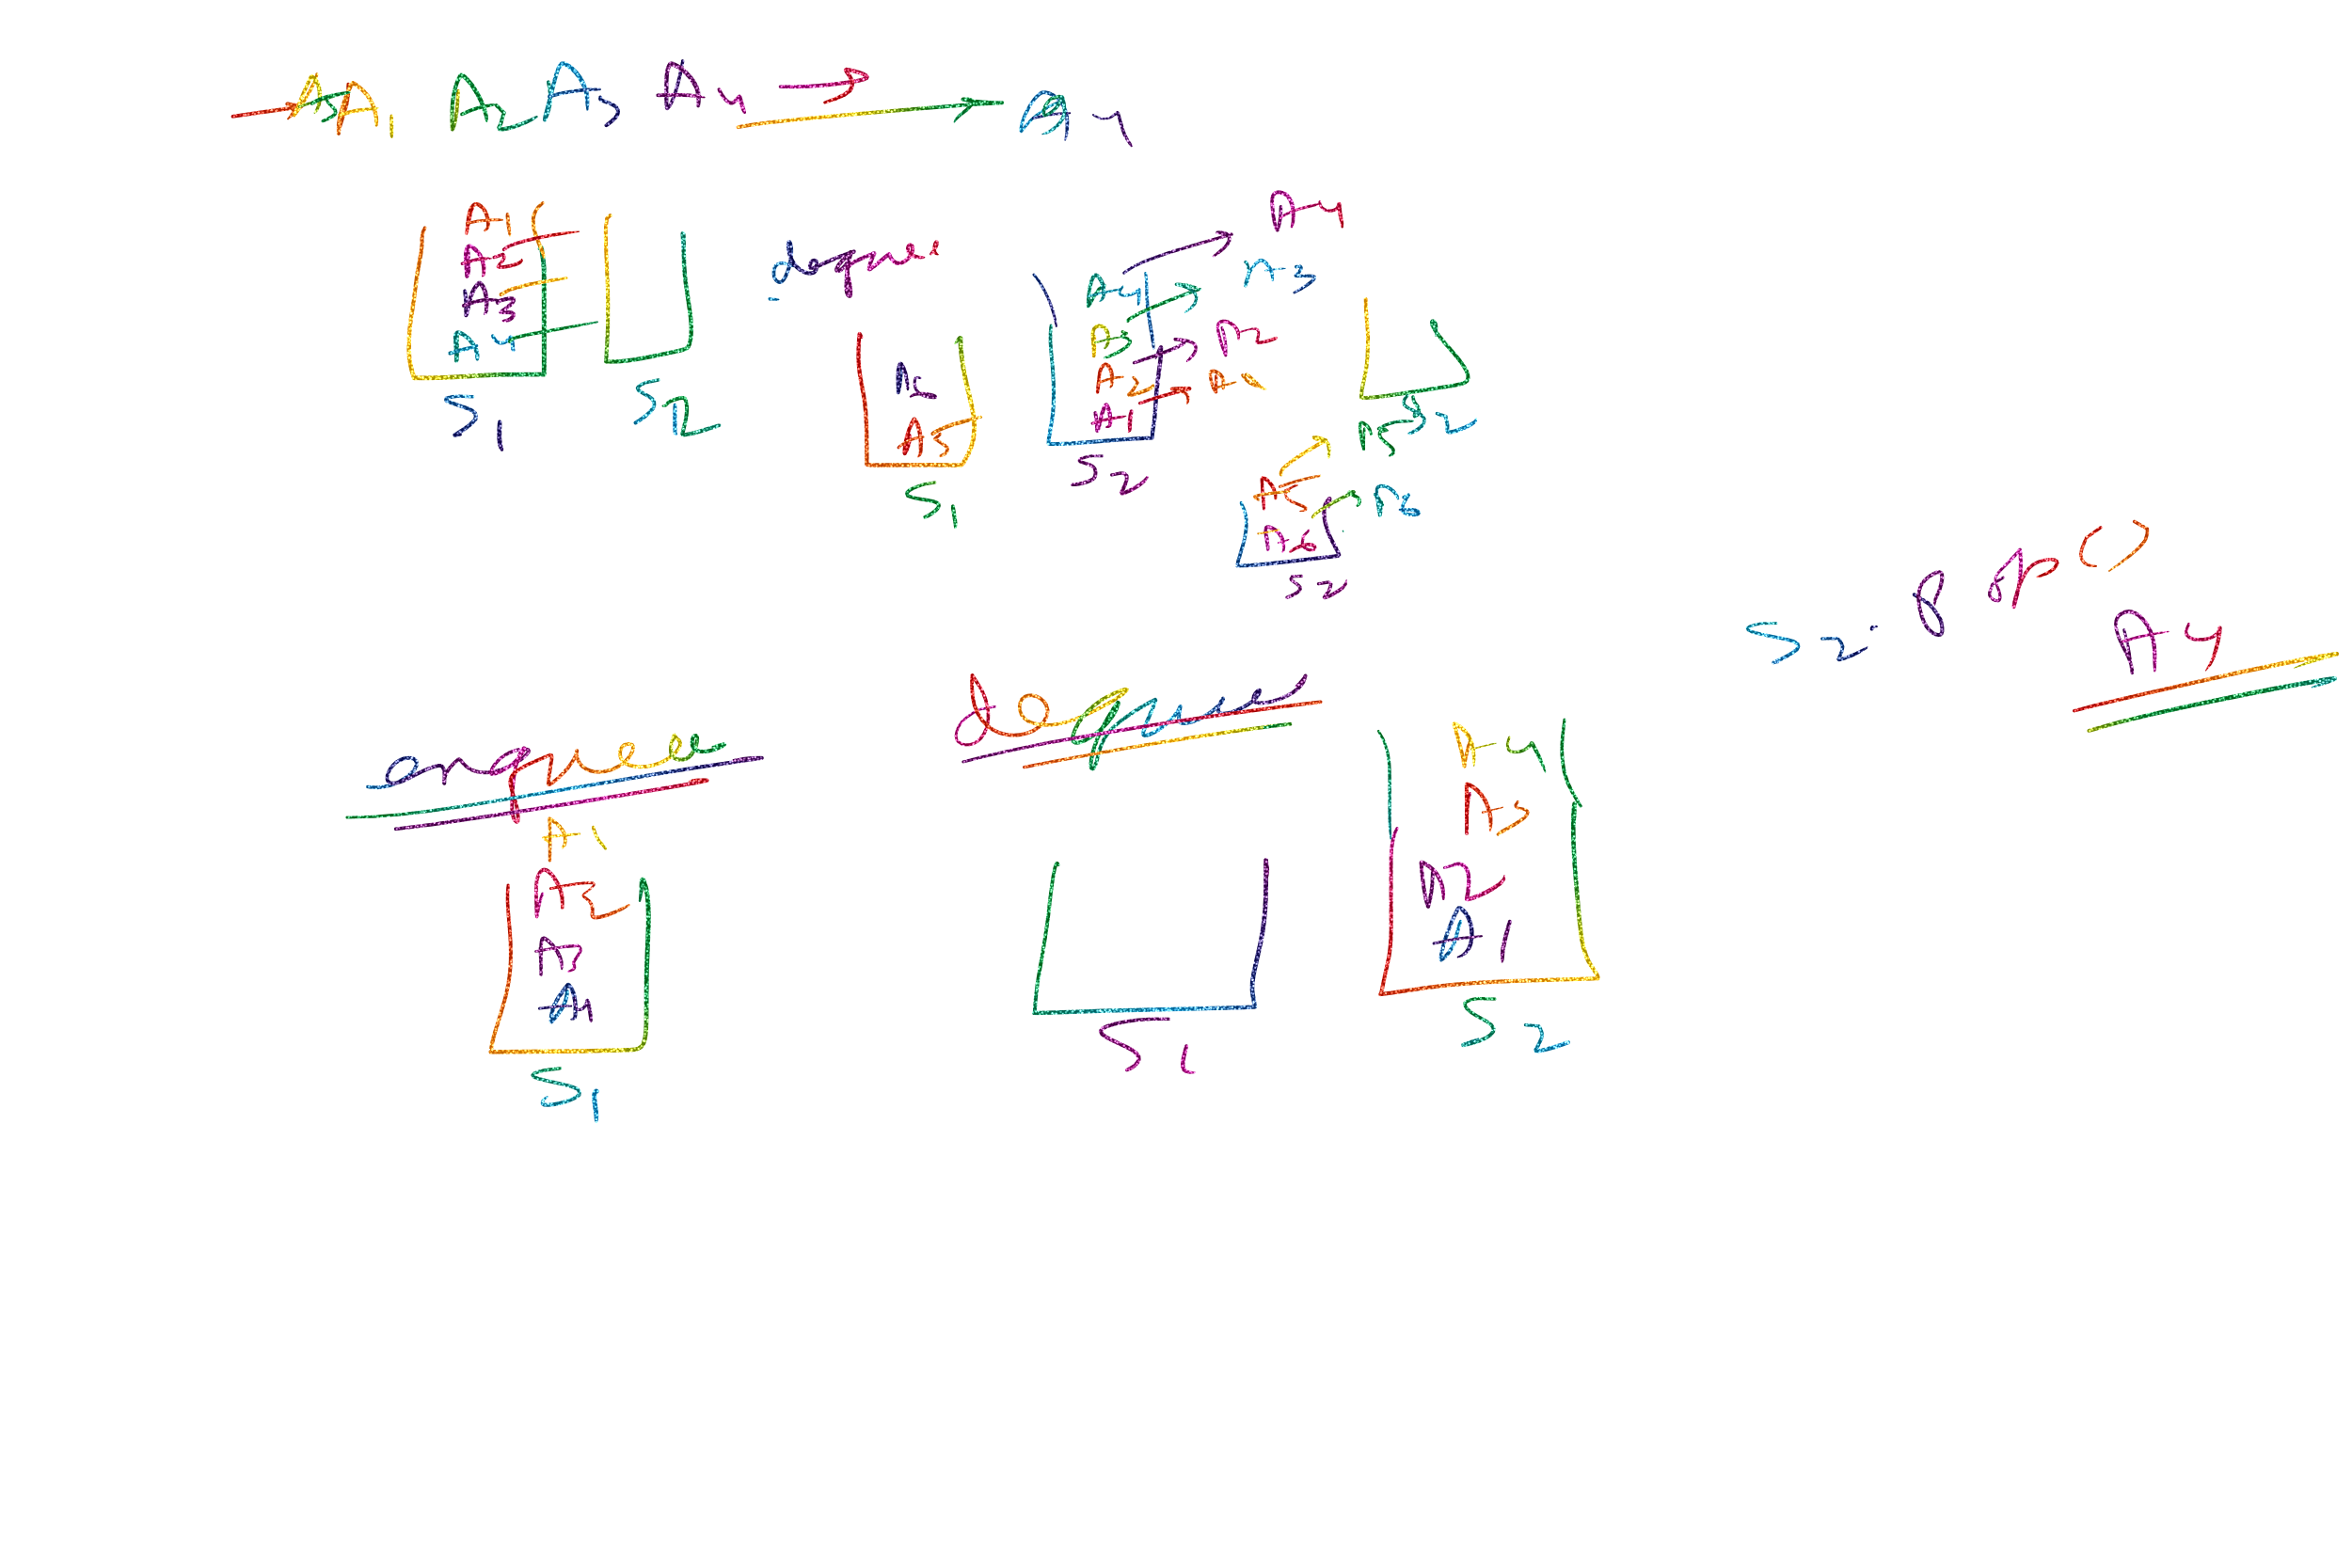 A5 A1 A2 A3 A4 A4
A1
A2
A3
A4
S1
S2
deque
A6
A5
S1
A4 A4
A3 A3
A2 A2
A1 A1
S2
S2
A5 A5
A6 A6
S2
S2. pop()
A4
enque
A1
A2
A3
A4
S1
deque
S1
A4
A3
A2
A1
S2